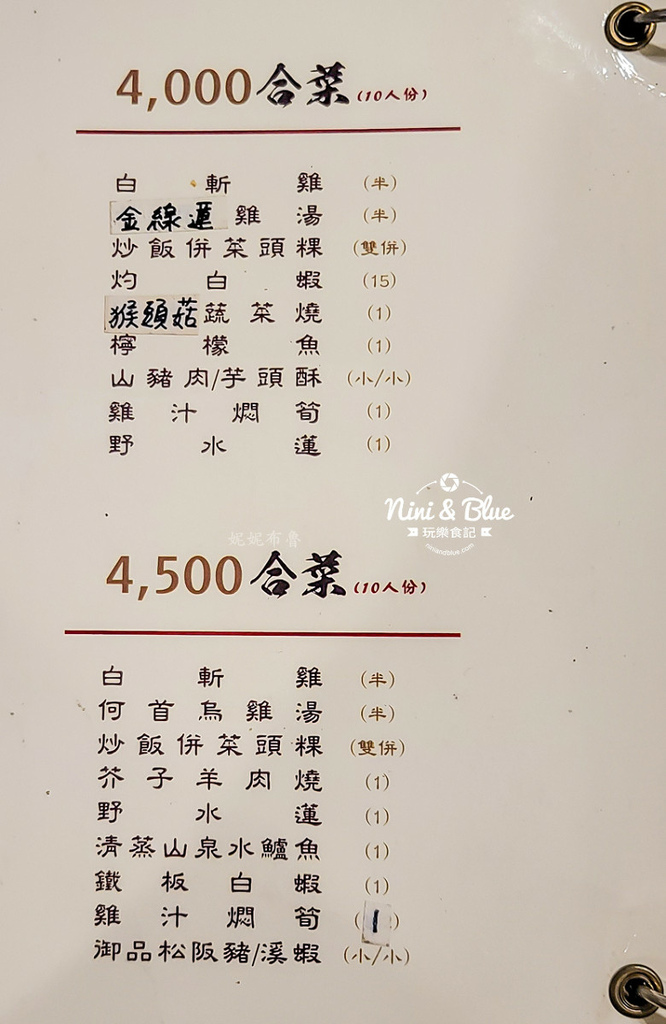 4,000合菜(10人份)
白斬雞 (半)
金線蓮雞湯 (半)
炒飯併菜頭粿 (雙併)
灼白蝦 (15)
猴頭菇蔬菜燒 (1)
檸檬魚 (1)
山豬肉/芋頭酥 (小/小)
雞汁燜筍 (1)
野水蓮 (1)
Nini & Blue
玩樂食記
niniandblue.com
妮妮布魯
4,500合菜(10人份)
白斬雞 (半)
何首烏雞湯 (半)
炒飯併菜頭粿 (雙併)
芥子羊肉燒 (1)
野水蓮 (1)
清蒸山泉水鱸魚 (1)
鐵板白蝦 (1)
雞汁燜筍 (1)
御品松阪豬/溪蝦 (小/小)